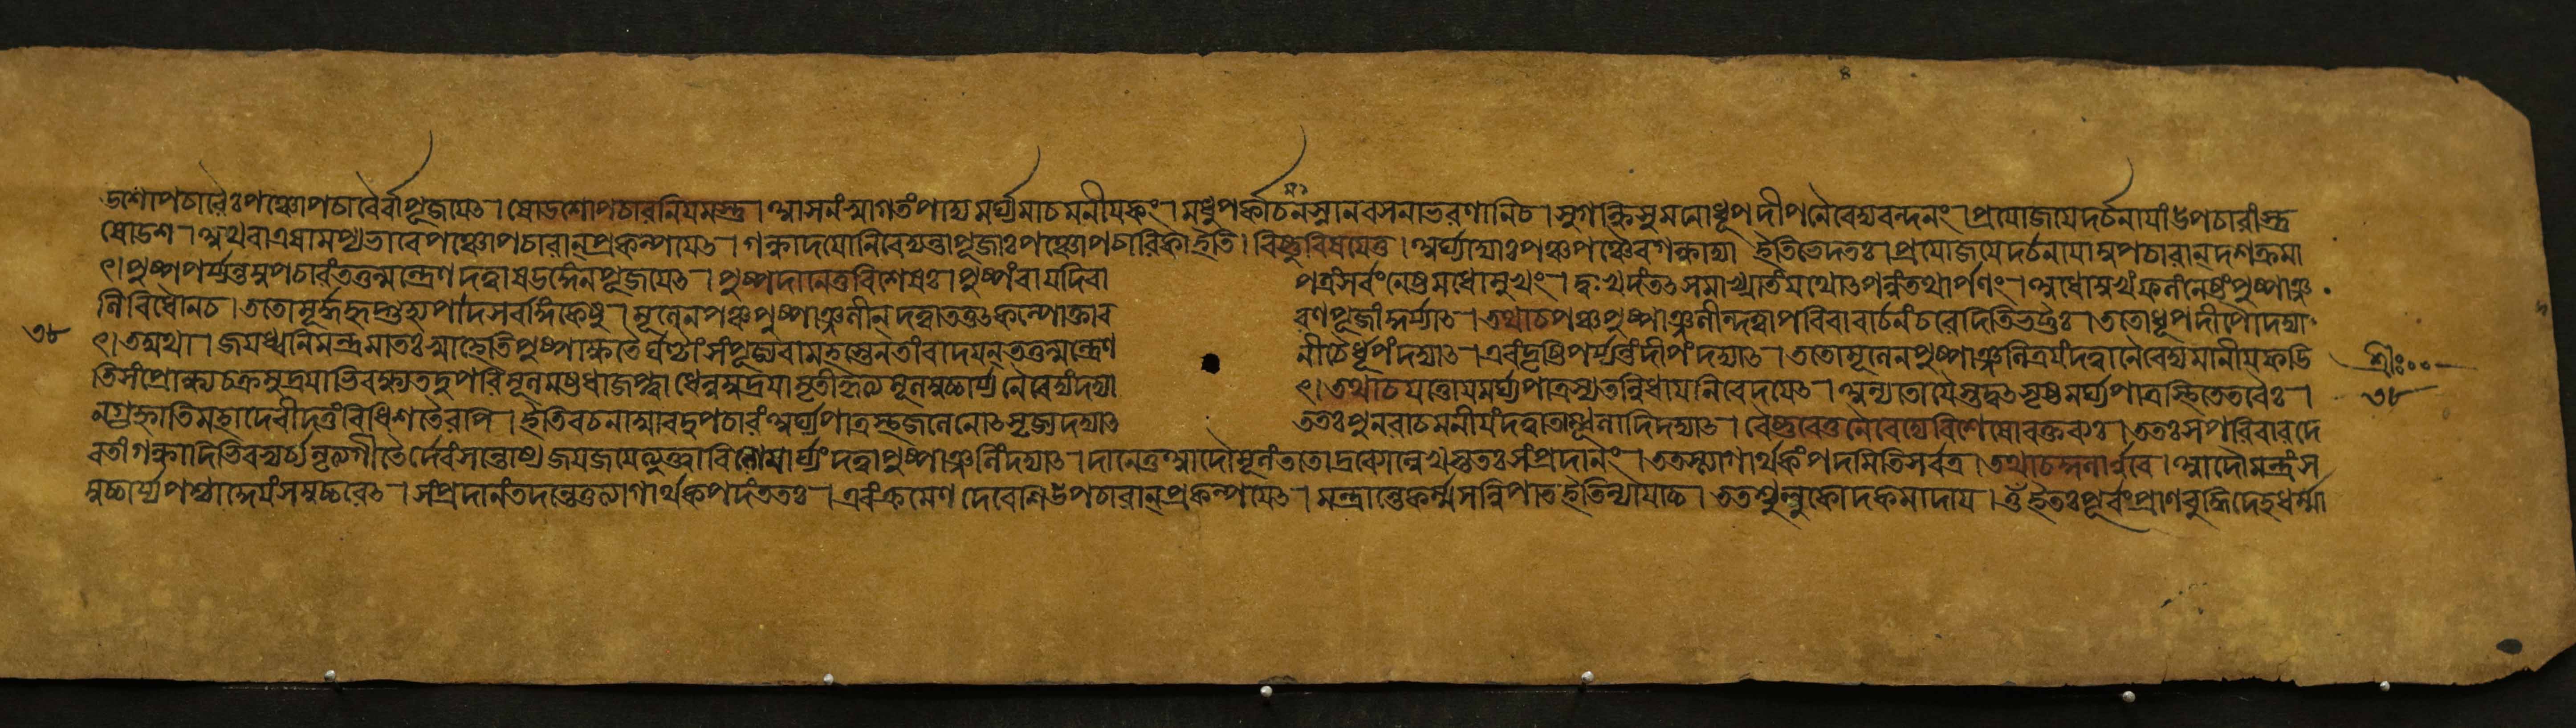 ড়শোপচারৈঃ পঞ্চোপচাৰৈর্ব্বা পূজয়েৎ । ষোড়শোপচারনিয়মস্তু । আসনং স্বাগতং পাদ্যমর্ঘ্যমাচমনীয়কং । মধুপর্কাচমনস্নানবসনাভরণানি চ । সুগন্ধিসুমনোধূপদীপনৈবেদ্যবন্দনং । প্রযোজয়েদর্চনায়াং উপচারাংস্তু
ষোড়শ । অথবা এষামপ্যভাবে পঞ্চোপচারান্ প্রকল্পয়েৎ । গন্ধাদয়ো নিবেদ্যান্তা পূজাঃ পঞ্চোপচারিকা ইতি । বিষ্ণুবিষয়ে তু । অর্ঘ্যাদ্যাঃ পঞ্চ পঞ্চৈব গন্ধাদ্যা ইতি ভেদতঃ । প্রযোজয়েদর্চনায়ামুপচারান্ দশ ক্রমা
ৎ । পুষ্পপর্য্যন্তমুপচারং তত্তন্মন্ত্রেণ দত্ত্বা ষড়ঙ্গেন পূজয়েৎ । পুষ্পদানে তু বিশেষঃ । পুষ্পং বা যদি বা পত্রং সর্ব্বং নেষ্টমধোমুখং । দুঃখদং তৎ সমাখ্যাতং যথোৎপন্নং তথার্পণং । অধোমুখং ফলং নেষ্টং পুষ্পাঞ্জ
লিবিধৌ ন চ । ততো মূর্দ্ধহৃদ্গুহ্যপাদসর্ব্বাঙ্গকেষু । মূলেন পঞ্চপুষ্পাঞ্জলীন্ দত্ত্বা তত্তৎকল্পোক্তাব রণপূজাং কুর্য্যাৎ । তথা চ পঞ্চপুষ্পাঞ্জলীন্দত্ত্বা পরিবারার্চনং চরেদিতি তন্ত্রঃ । ততো ধূপদীপৌ দদ্যা
ৎ । তদ্যথা । জয়ধ্বনিমন্ত্রমাতঃ স্বাহেতি পুষ্পাক্ষতৈর্ঘণ্টাং সংপূজ্য বামহস্তেন তাং বাদয়ন্ তত্তন্মন্ত্রেণ নীচৈর্ধূপং দদ্যাৎ । এবং দৃষ্টিপর্য্যন্তং দীপং দদ্যাৎ । ততো মূলেন পুষ্পাঞ্জলিত্রয়ং দত্ত্বা নৈবেদ্যমানীয় ফড়ি
তি সংপ্রোক্ষ্য চক্রমুদ্রয়াভিরক্ষ্য তদুপরি মূলমষ্টধা জপ্ত্বা ধেনুমুদ্রয়ামৃতীকৃত্য মূলমুচ্চার্য্য নৈবেদ্যং দদ্যা ৎ । তথা চ যত্তোয়মর্ঘ্যপাত্রস্য তন্নিধায় নিবেদয়েৎ । অন্যতোয়ৈস্তু যদুৎসৃষ্টমর্ঘ্যপাত্রস্থিতেতরৈঃ ।
ন গৃহ্নাতি মহাদেবী দত্তং বিধিশতৈরপি । ইতি বচনান্মাবদুপচারং অর্ঘ্যপাত্রস্থজলেনোৎসৃজ্য দদ্যাৎ ততঃ পুনরাচমনীয়ং দত্ত্বা তাম্বূলাদি দদ্যাৎ । বৈষ্ণবে তু নৈবেদ্যে বিশেষো বক্তব্যঃ । ততঃ সপরিবারদে
বতাং গন্ধাদিভিরভ্যর্চ্য নৃত্যগীতৈর্দেবং সন্তোষ্য জয় জয়েত্যুক্ত্বা বিলোমার্ঘ্যং দত্ত্বা পুষ্পাঞ্জলিং দদ্যাৎ । দানে তু আদৌ মূলং ততো দ্রব্যোল্লেখস্ততঃ সংপ্রদানং । ততস্ত্যাগার্থকং পদমিতি সর্ব্বত্র । তথা চ কুলার্ণবে । আদৌ মন্ত্রং স
মুচ্চার্য্য পশ্চাদ্দেয়ং সমুচ্চরেৎ । সংপ্রদানং তদন্তে তু ত্যাগার্থকপদং ততঃ । এবং ক্রমেণ দেবেশি উপচারান্ প্রকল্পয়েৎ । মন্ত্রান্তে কর্ম্মসন্নিপাত ইতি ন্যায়াচ্চ । ততশ্চুলুকোদকমাদায় । ওঁ ইতঃ পূর্ব্বং প্রাণবুদ্ধিদেহধর্ম্মা
৩৮
শ্রীঃ
৩৮